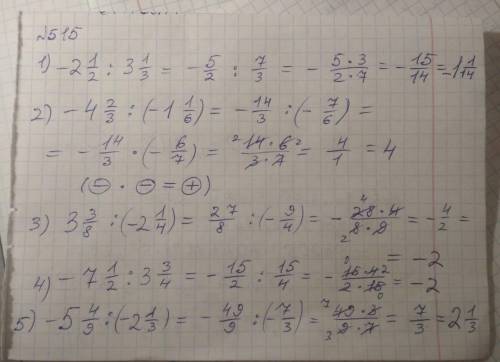 №515
1) -2 1/2 : 3 1/3 = -5/2 : 7/3 = - 5·3/2·7 = -15/14 = -1 1/14
2) -4 2/3 : (-1 1/6) = -14/3 : (-7/6) =
= -14/3 · (-6/7) = ² 14·6 ²/3·7 = 4/1 = 4
(⊖ · ⊖ = ⊕)
3) 3 3/8 : (-2 1/4) = 27/8 : (-9/4) = - 28·4/8·9 = -4/2 =
= -2
4) -7 1/2 : 3 3/4 = -15/2 : 15/4 = - 15·4 2/2·15 = -2
5) -5 4/9 : (-2 1/3) = -49/9 : (-7/3) = ⁷ 49·3/₃ 9·7 = 7/3 = 2 1/3